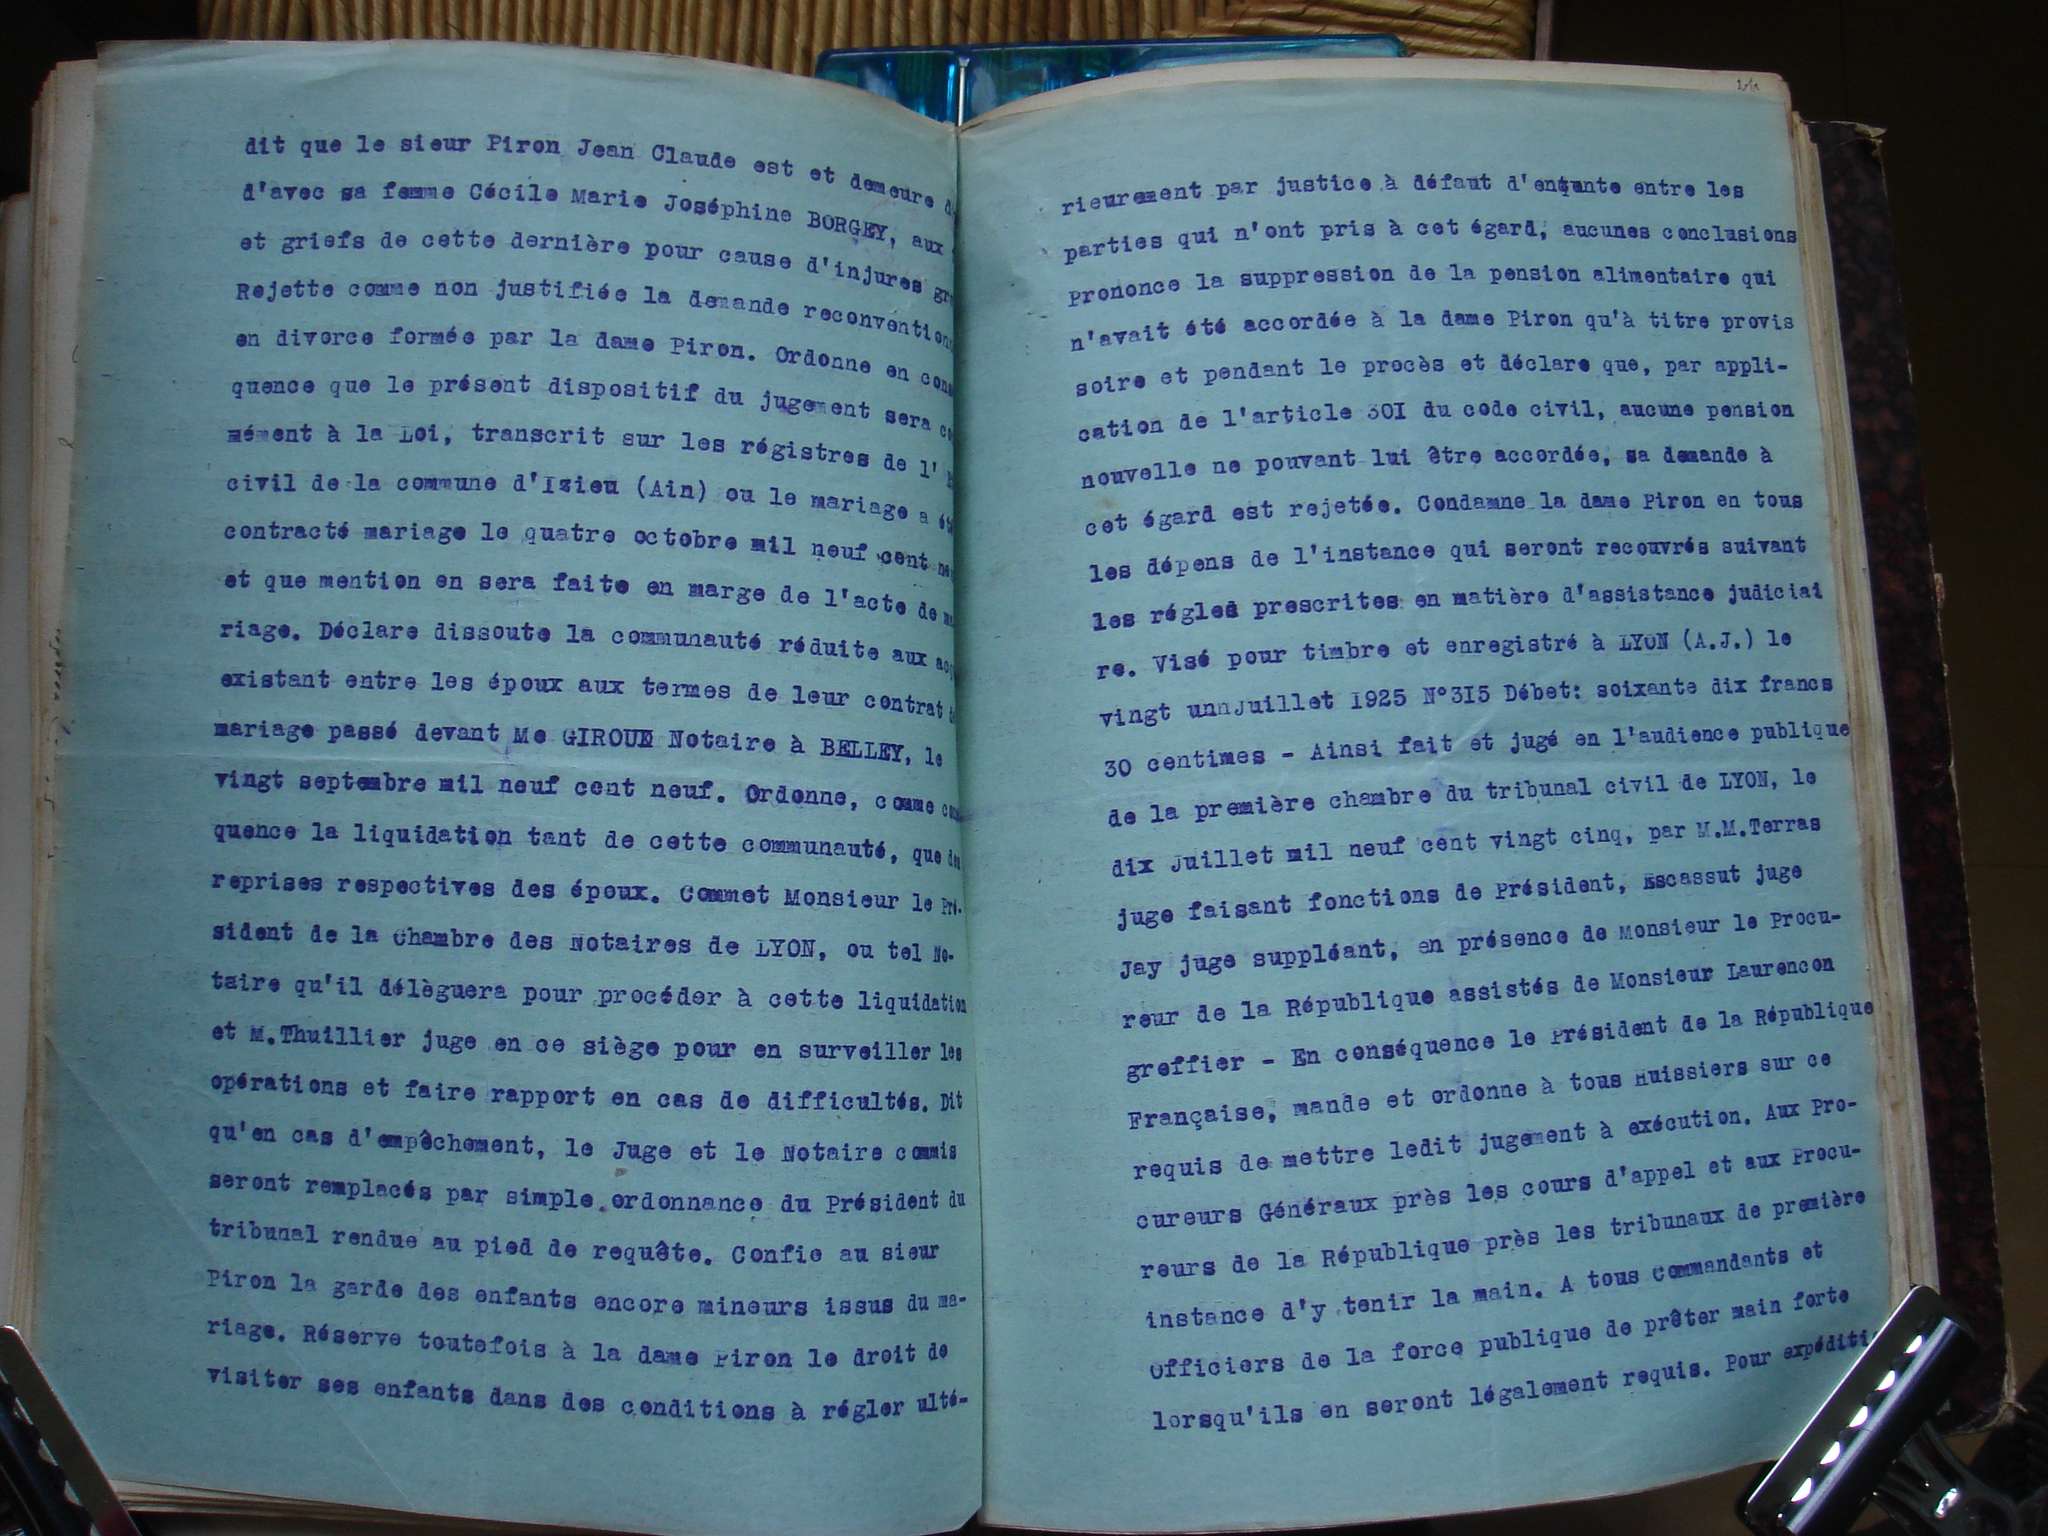 dit que le sieur Piron Jean Claude est et demeure
d'avec sa femme Cécile Marie Joséphine BORGEY, aux
et griefs de cette dernière pour cause d'injures
Rejette comme non justifiée la demande
en divorce formée par la dame Piron. Ordonne en
quence que le présent dispositif du jugement sera
mément à la Loi, transcrit sur les régistres de l'
civil de la commune d'Izieu (Ain) ou le mariage a
contracté mariage le quatre octobre mil neuf cent
et que mention en sera faite en marge de l'acte de
riage. Déclare dissoute la communauté réduite aux
existant entre les époux aux termes de leur contrat
mariage passé devant Me GIROUD Notaire à BELLEY, le
vingt septembre mil neuf cent neuf. Ordonne, comme
quence la liquidation tant de cette communauté, que
reprises respectives des époux. Commet Monsieur le Pré-
sident de la Chambre des Notaires de LYON, ou tel No-
taire qu'il délèguera pour procéder à cette liquidation
et M.Thuillier juge en ce siège pour en surveiller les
opérations et faire rapport en cas de difficultés. Dit
qu'en cas d'empêchement, le Juge et le Notaire commis
seront remplacés par simple ordonnance du Président du
tribunal rendue au pied de requête. Confie au sieur
Piron la garde des enfants encore mineurs issus du ma-
riage. Réserve toutefois à la dame Piron le droit de
visiter ses enfants dans des conditions à régler ulté-
rieurement par justice à défaut d'entente entre les
parties qui n'ont pris à cet égard, aucunes conclusions
Prononce la suppression de la pension alimentaire qui
n'avait été accordée à la dame Piron qu'à titre provis
soire et pendant le procès et déclare que, par appli-
cation de l'article 30I du code civil, aucune pension
nouvelle ne pouvant lui être accordée, sa demande à
cet égard est rejetée. Condamne la dame Piron en tous
les dépens de l'instance qui seront recouvrés suivant
les régles prescrites en matière d'assistance judiciai
re. Visé pour timbre et enregistré à LYON (A.J.) le
vingt unnJuillet I925 N°3I5 Débet: soixante dix francs
30 centimes - Ainsi fait et jugé en l'audience publique
de la première chambre du tribunal civil de LYON, le
dix Juillet mil neuf cent vingt cinq, par M.M.Terras
juge faisant fonctions de Président, Escassut juge
Jay juge suppléant, en présence de Monsieur le Procu-
reur de la République assistés de Monsieur Laurencon
greffier - En conséquence le Président de la République
Française, mande et ordonne à tous Huissiers sur ce
requis de mettre ledit jugement à exécution. Aux Pro-
cureurs Généraux près les cours d'appel et aux Procu-
reurs de la République près les tribunaux de première
instance d'y tenir la main. A tous Commandants et
Officiers de la force publique de prêter main forte
lorsqu'ils en seront légalement requis. Pour